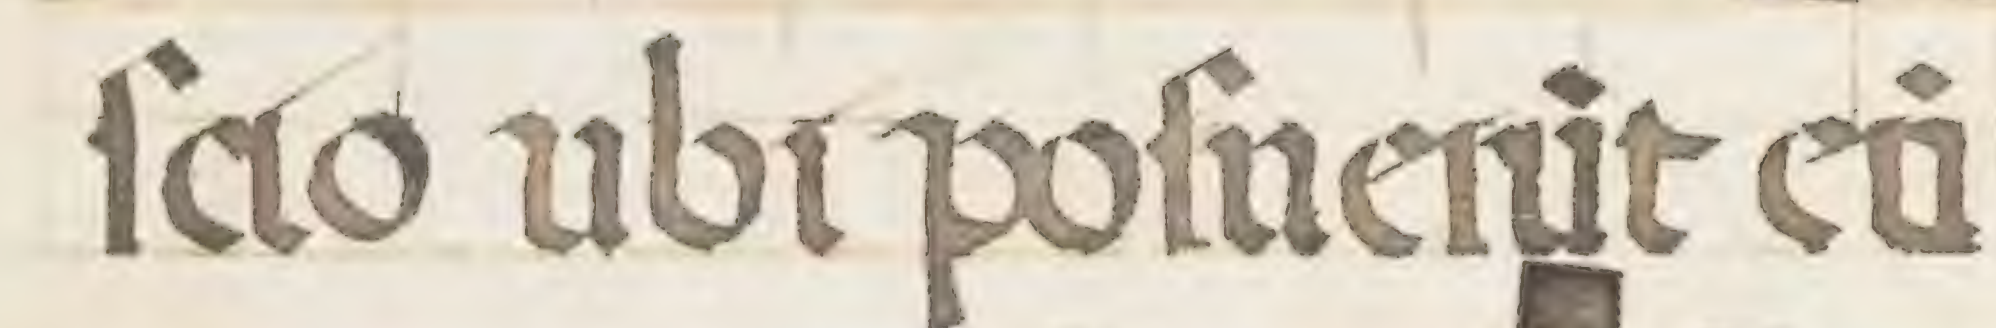 scio ubi posuerūt eū